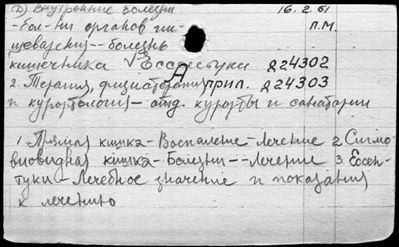 б) Внутренние болезни 16.2.61
-Бол-ни органов пи- П.М.
щеварения--болезнь
кишечника √ Ессентуки д24302
2. Терапия, физиотерапия прил. д24303
и курортология - отд. курорты и санатории
1. Прямая кишка - Воспаление - Лечение 2. Сигмо
видная кишка - Болезни -- Лечение 3. Ессен-
туки - Лечебное значение и показания
к лечению